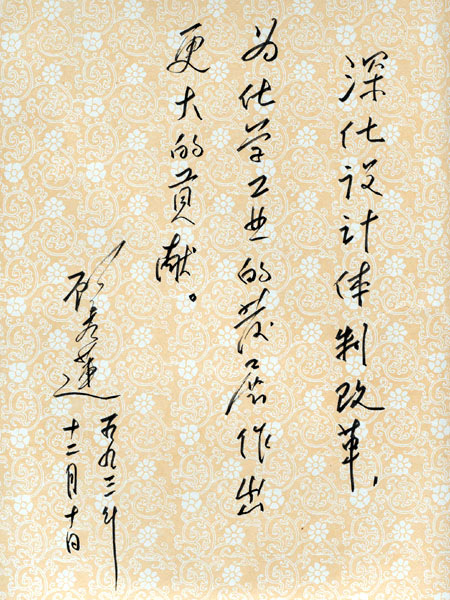 深化设计体制改革，
为化学工业的发展作出
更大的贡献。
顾秀莲
一九九三年
十二月十日